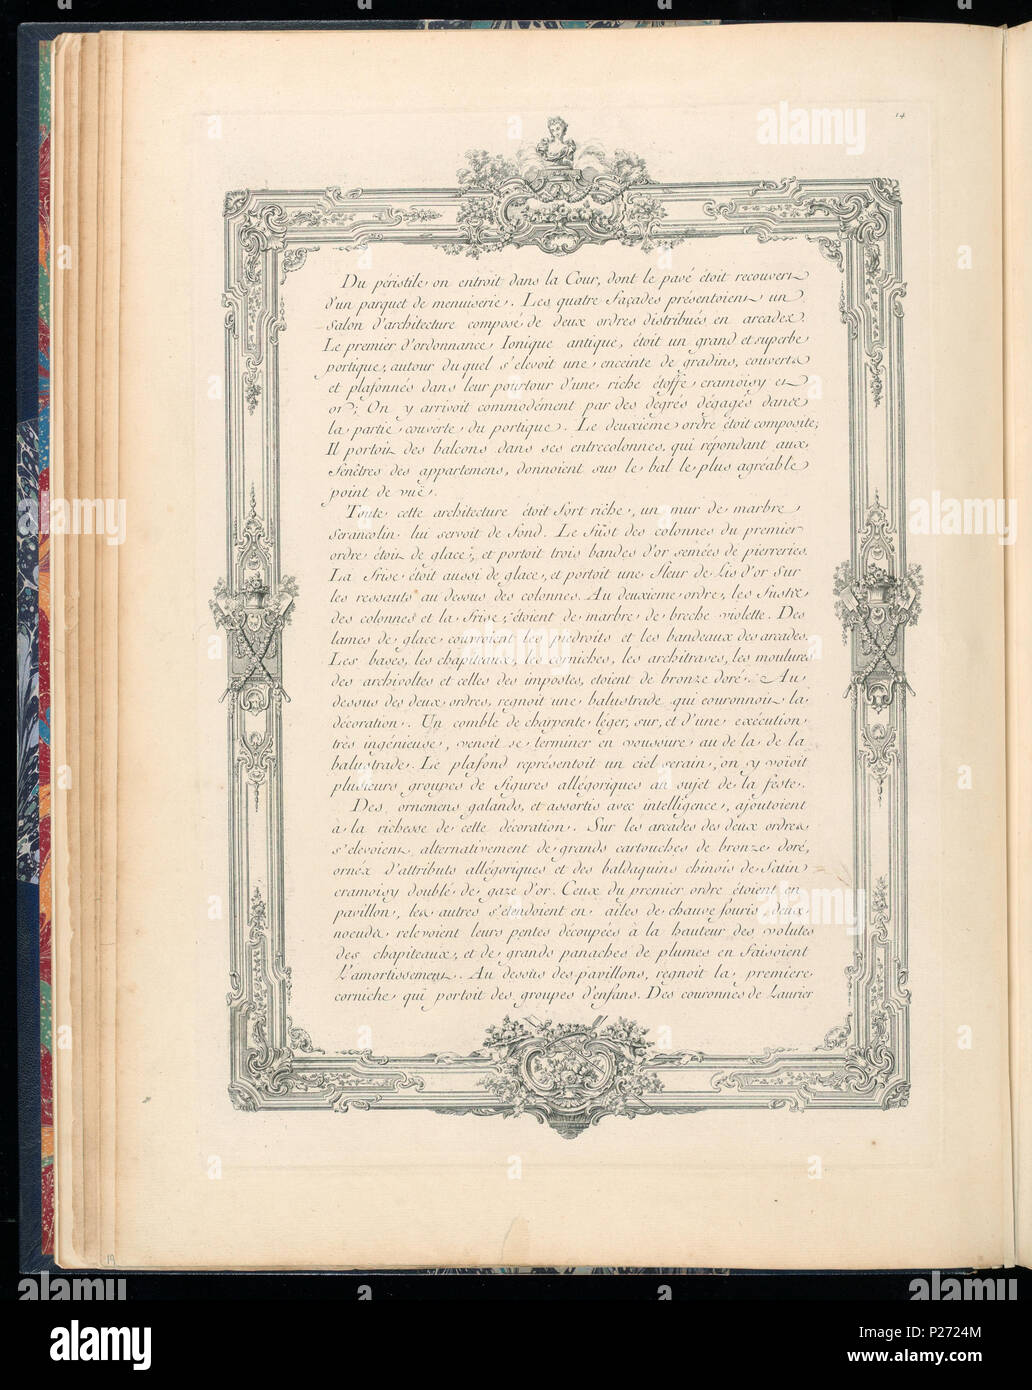 14
Du péristile on entroit dans la Cour, dont le pavé étoit recouvert
d'un parquet de menuiserie. Les quatre façades présentoient un
Salon d'architecture composé de deux ordres distribués en arcades.
Le premier d'ordonnance Ionique antique, étoit un grand et superbe
portique, autour du quel s'elevoit une enceinte de gradins, couverts
et plafonnés dans leur pourtour d'une riche étoffe cramoisy et
or; On y arrivoit commodément par des degrés dégagés dans
la partie couverte du portique. Le deuxième ordre étoit composite;
Il portoit des balcons dans ses entrecolonnes, qui répondant aux
fenêtres des appartemens, donnoient sur le bal le plus agréable
point de vuë.
Toute cette architecture étoit fort riche, un mur de marbre
serancolin lui servoit de fond. Le fust des colonnes du premier
ordre étoit de glace, et portoit trois bandes d'or semées de pierreries.
La frise étoit aussi de glace, et portoit une fleur de Lis d'or sur
les ressauts au dessus des colonnes. Au deuxième ordre, les fusts
des colonnes et la frise, étoient de marbre de breche violette. Des
lames de glace couvroient les piedroits et les bandeaux des arcades.
Les bases, les chapiteaux, les corniches, les architraves, les moulures
des archivoltes et celles des impostes, etoient de bronze doré. Au
dessus des deux ordres, regnoit une balustrade qui couronnoit la
décoration. Un comble de charpente léger, sur, et d'une exécution
très ingénieuse, venoit se terminer en voussure au de la de la
balustrade. Le plafond représentoit un ciel serain, on y voïoit
plusieurs groupes de figures allégoriques au sujet de la feste.
Des ornemens galands, et assortis avec intelligence, ajoutoient
à la richesse de cette décoration. Sur les arcades des deux ordres
s'elevoient alternativement de grands cartouches de bronze doré,
ornés d'attributs allégoriques et des baldaquins chinois de Satin
cramoisy doublé de gaze d'or. Ceux du premier ordre étoient en
pavillon, les autres s'etendoient en ailes de chauve souris, deux
noeuds relevoient leurs pentes découpées à la hauteur des volutes
des chapiteaux, et de grands panaches de plumes en faisoient
L'amortissement. Au dessus des pavillons, regnoit la premiere
corniche qui portoit des groupes d'enfans. Des couronnes de Laurier
19
a alamy stock photo
alamy
Image ID: P2724M
www.alamy.com